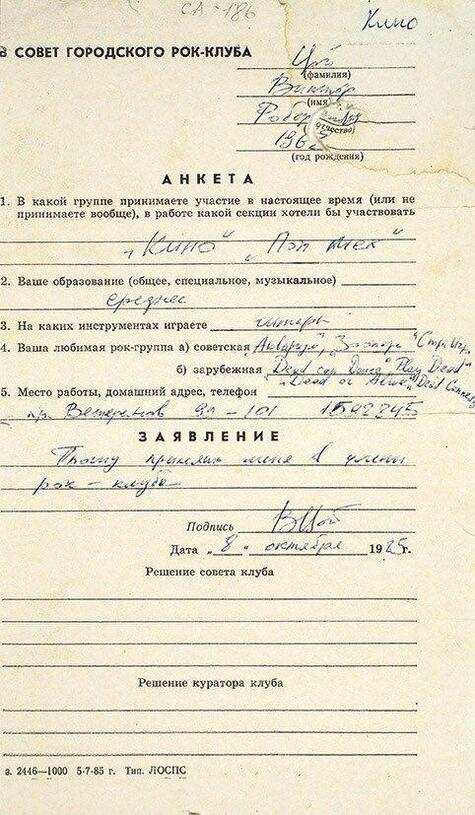 СА-186
Кино
В СОВЕТ ГОРОДСКОГО РОК-КЛУБА
Цой
(фамилия)
Виктор
(имя)
(отчество)
196
(год рождения)
АНКЕТА
1. В какой группе принимаете участие в настоящее время (или не
принимаете вообще), в работе какой секции хотели бы участвовать
„Кино“ „Поп мех“
2. Ваше образование (общее, специальное, музыкальное)
среднее
3. На каких инструментах играете гитара
4. Ваша любимая рок-группа а) советская „Аквариум“, Зоопарк
б) зарубежная „Dead can Dance“, Play Dead“
„Dead or Alive“, Dead
5. Место работы, домашний адрес, телефон
пр. Ветеранов 99 - 101 1592245
ЗАЯВЛЕНИЕ
Прошу принять меня в члены
рок - клуба
Подпись ВЦой
Дата „8“ октября 1985г.
Решение совета клуба
Решение куратора клуба
з. 2446—1000 5-7-85 г. Тип. ЛОСПС